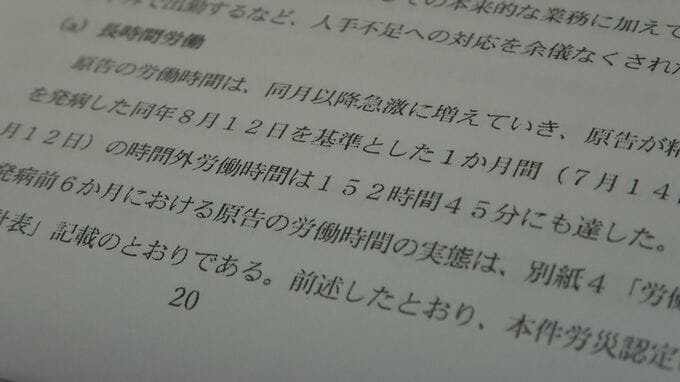 外で出動するなど、人手不足への対応を余儀なくされ
ての本来的な業務に加えて
(a) 長時間労働
原告の労働時間は、同月以降急激に増えていき、原告が精
を発病した同年８月１２日を基準とした１か月間（７月１４
月１２日）の時間外労働時間は１５２時間４５分にも達した。
発病前６か月における原告の労働時間の実態は、別紙４「労働
計表」記載のとおりである。前述したとおり、本件労災認定
20